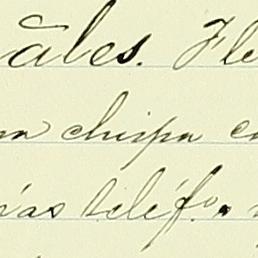 ales. Fle
na chispa co
ias teléfº.